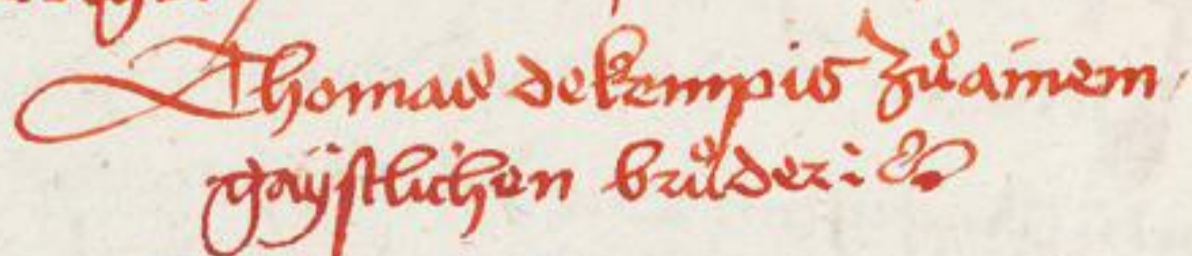 Thomas de kempis zů ainem
gaÿstlichen brůder :